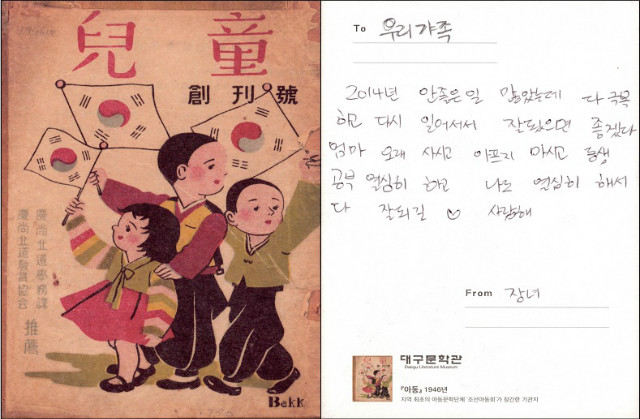 兒童
創刊號
慶尚北道學務課
慶尚北道敎育協会
推薦
Bekk
To 우리가족
2014년 안좋은일 많았는데 다 극복
하고 다시 일어서서 잘됐으면 좋겠다
엄마 오래 사시고 아프지 마시고 동생
공부 열심히 하고 나도 열심히 해서
다 잘되길 ♡ 사랑해
From 장녀
대구문학관
Daegu Literature Museum
『아동』 1946년
지역 최초의 아동문학단체 '조선아동회'가 창간한 기관지